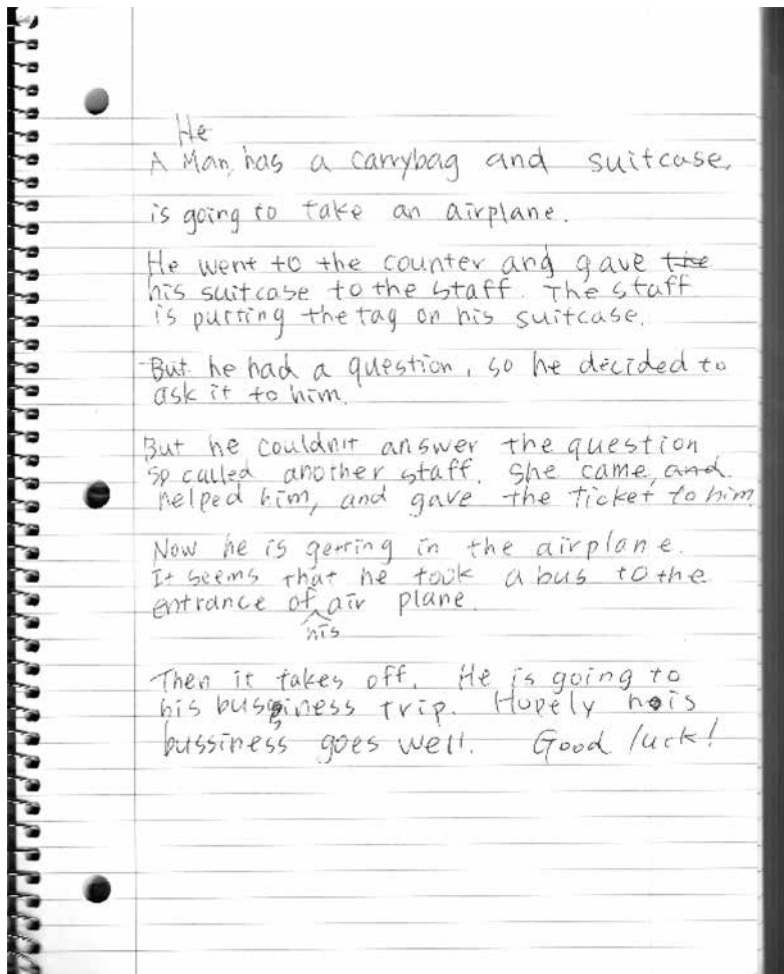 He
A Man, has a carrybag and suitcase,
is going to take an airplane.
He went to the counter and gave the
his suitcase to the staff. The staff
is putting the tag on his suitcase.
But he had a question, so he decided to
ask it to him.
But he couldn't answer the question
so called another staff. She came, and
helped him, and gave the ticket to him
Now he is getting in the airplane.
It seems that he took a bus to the
entrance of air plane.
his
Then it takes off. He is going to
his bussiness trip. Hopely his
bussiness goes well. Good luck!